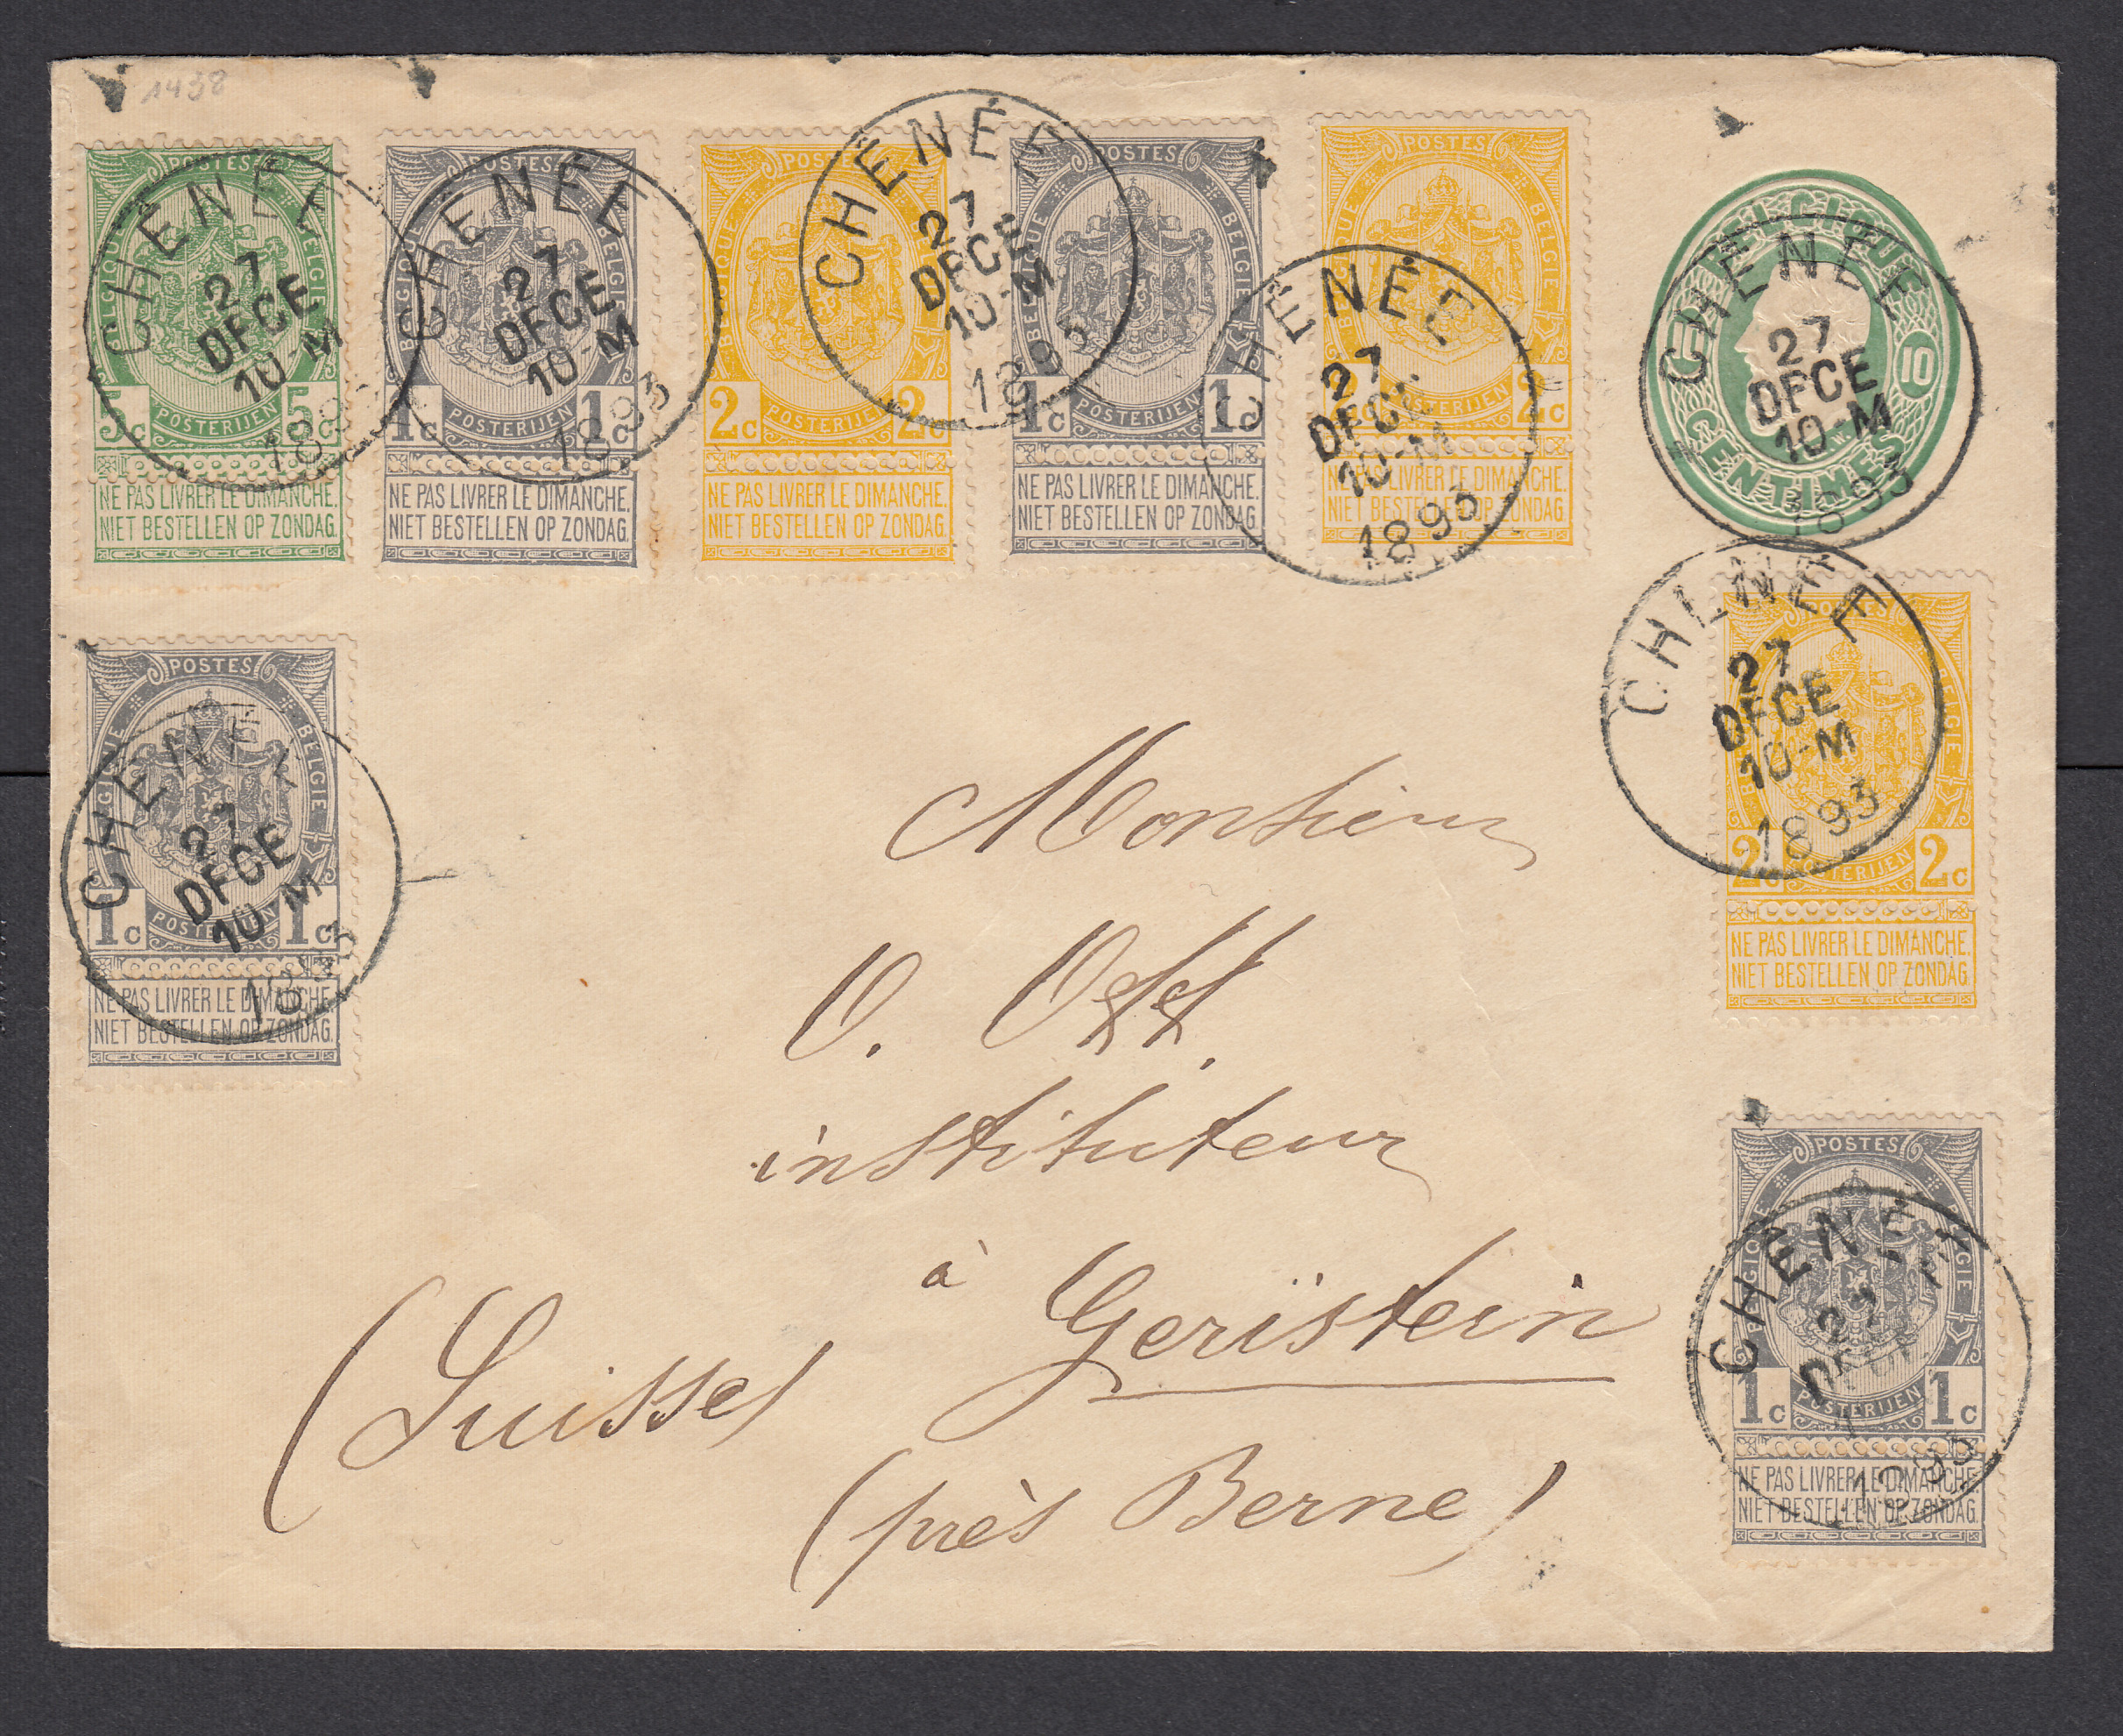 1438
POSTES
BELGIQUE BELGIE
5c 5c
POSTERIJEN
NE PAS LIVRER LE DIMANCHE.
NIET BESTELLEN OP ZONDAG.
CHÊNÉE
27
DECE
10-M
1893
POSTES
BELGIQUE BELGIE
1c 1c
POSTERIJEN
NE PAS LIVRER LE DIMANCHE.
NIET BESTELLEN OP ZONDAG.
CHÊNÉE
27
DECE
10-M
1893
POSTES
BELGIQUE
2c 2c
POSTERIJEN
NE PAS LIVRER LE DIMANCHE.
NIET BESTELLEN OP ZONDAG.
CHÊNÉE
27
DECE
10-M
1893
POSTES
BELGIQUE BELGIE
1c 1c
POSTERIJEN
NE PAS LIVRER LE DIMANCHE.
NIET BESTELLEN OP ZONDAG.
POSTES
BELGIQUE BELGIE
2c 2c
POSTERIJEN
NE PAS LIVRER LE DIMANCHE.
NIET BESTELLEN OP ZONDAG.
CHÊNÉE
27
DECE
10-M
1893
BELGIQUE
10
CENTIMES
CHÊNÉE
27
DECE
10-M
1893
POSTES
BELGIQUE BELGIE
2c 2c
POSTERIJEN
NE PAS LIVRER LE DIMANCHE.
NIET BESTELLEN OP ZONDAG.
CHÊNÉE
27
DECE
10-M
1893
POSTES
BELGIQUE BELGIE
1c 1c
POSTERIJEN
NE PAS LIVRER LE DIMANCHE.
NIET BESTELLEN OP ZONDAG.
CHÊNÉE
27
DECE
10-M
1893
Monsieur
O. Ott.
instituteur
à Geristein
(Suisse)
(près Berne)
POSTES
BELGIQUE BELGIE
1c 1c
POSTERIJEN
NE PAS LIVRER LE DIMANCHE.
NIET BESTELLEN OP ZONDAG.
CHÊNÉE
27
DECE
1893